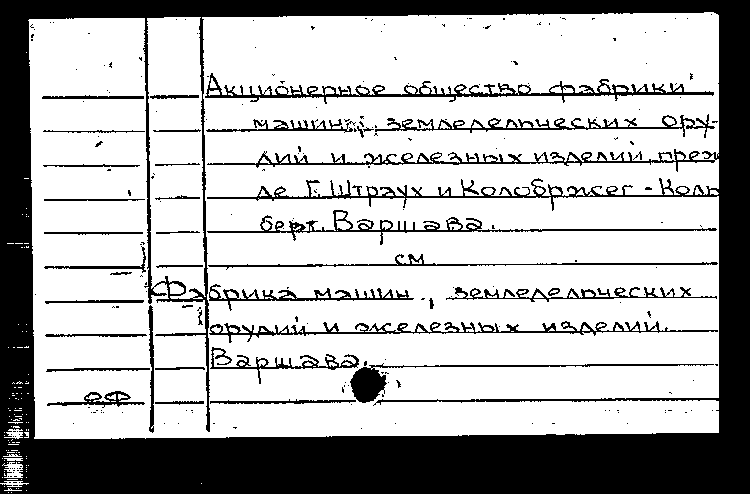 Акционерное общество фабрики
машин, земледельческих ору-
дий и железных изделий, преж
де Г. Штраух и Колобржег - Коль
берг. Варшава.
см
Фабрика машин, земледельческих
орудий и железных изделий.
Варшава.
ОФ